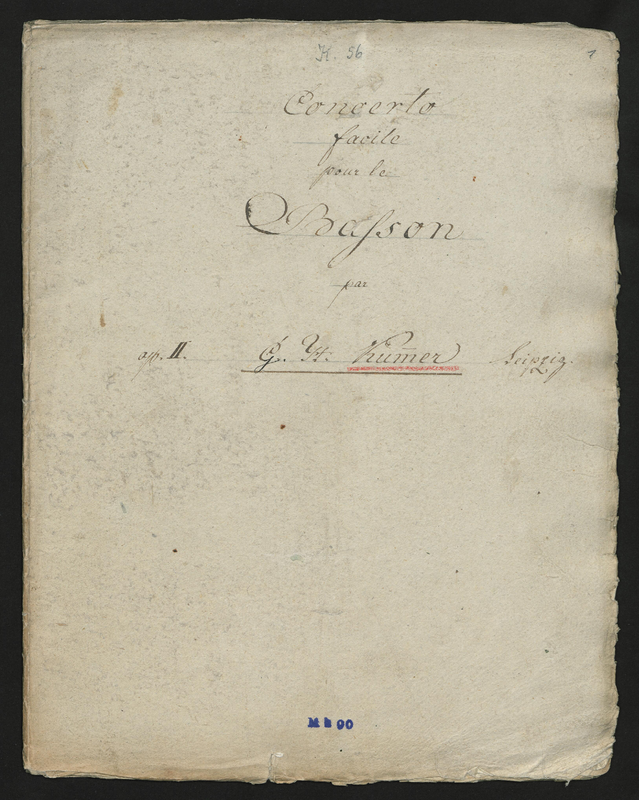 K. 56
1
Concerto
facile
pour le
Basson
par
op. II. G. H. Kum̅er Leipzig.
M b 90